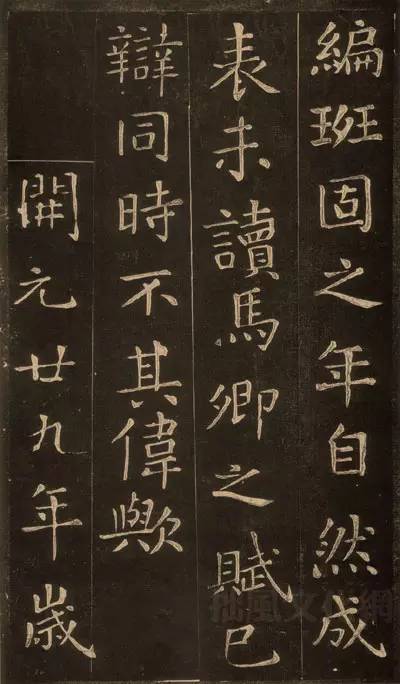 編班固之年自然成
表未讀馬卿之賦已
辯同時不其偉歟
開元廿九年歲
拙風文化網